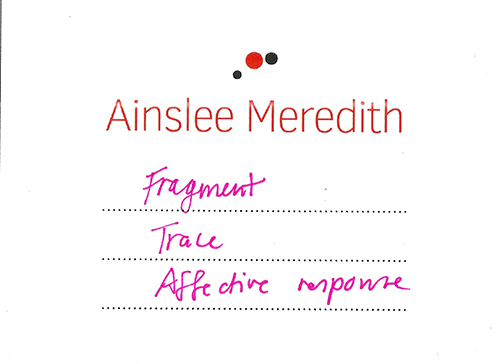 Ainslee Meredith
Fragment
Trace
Affective response